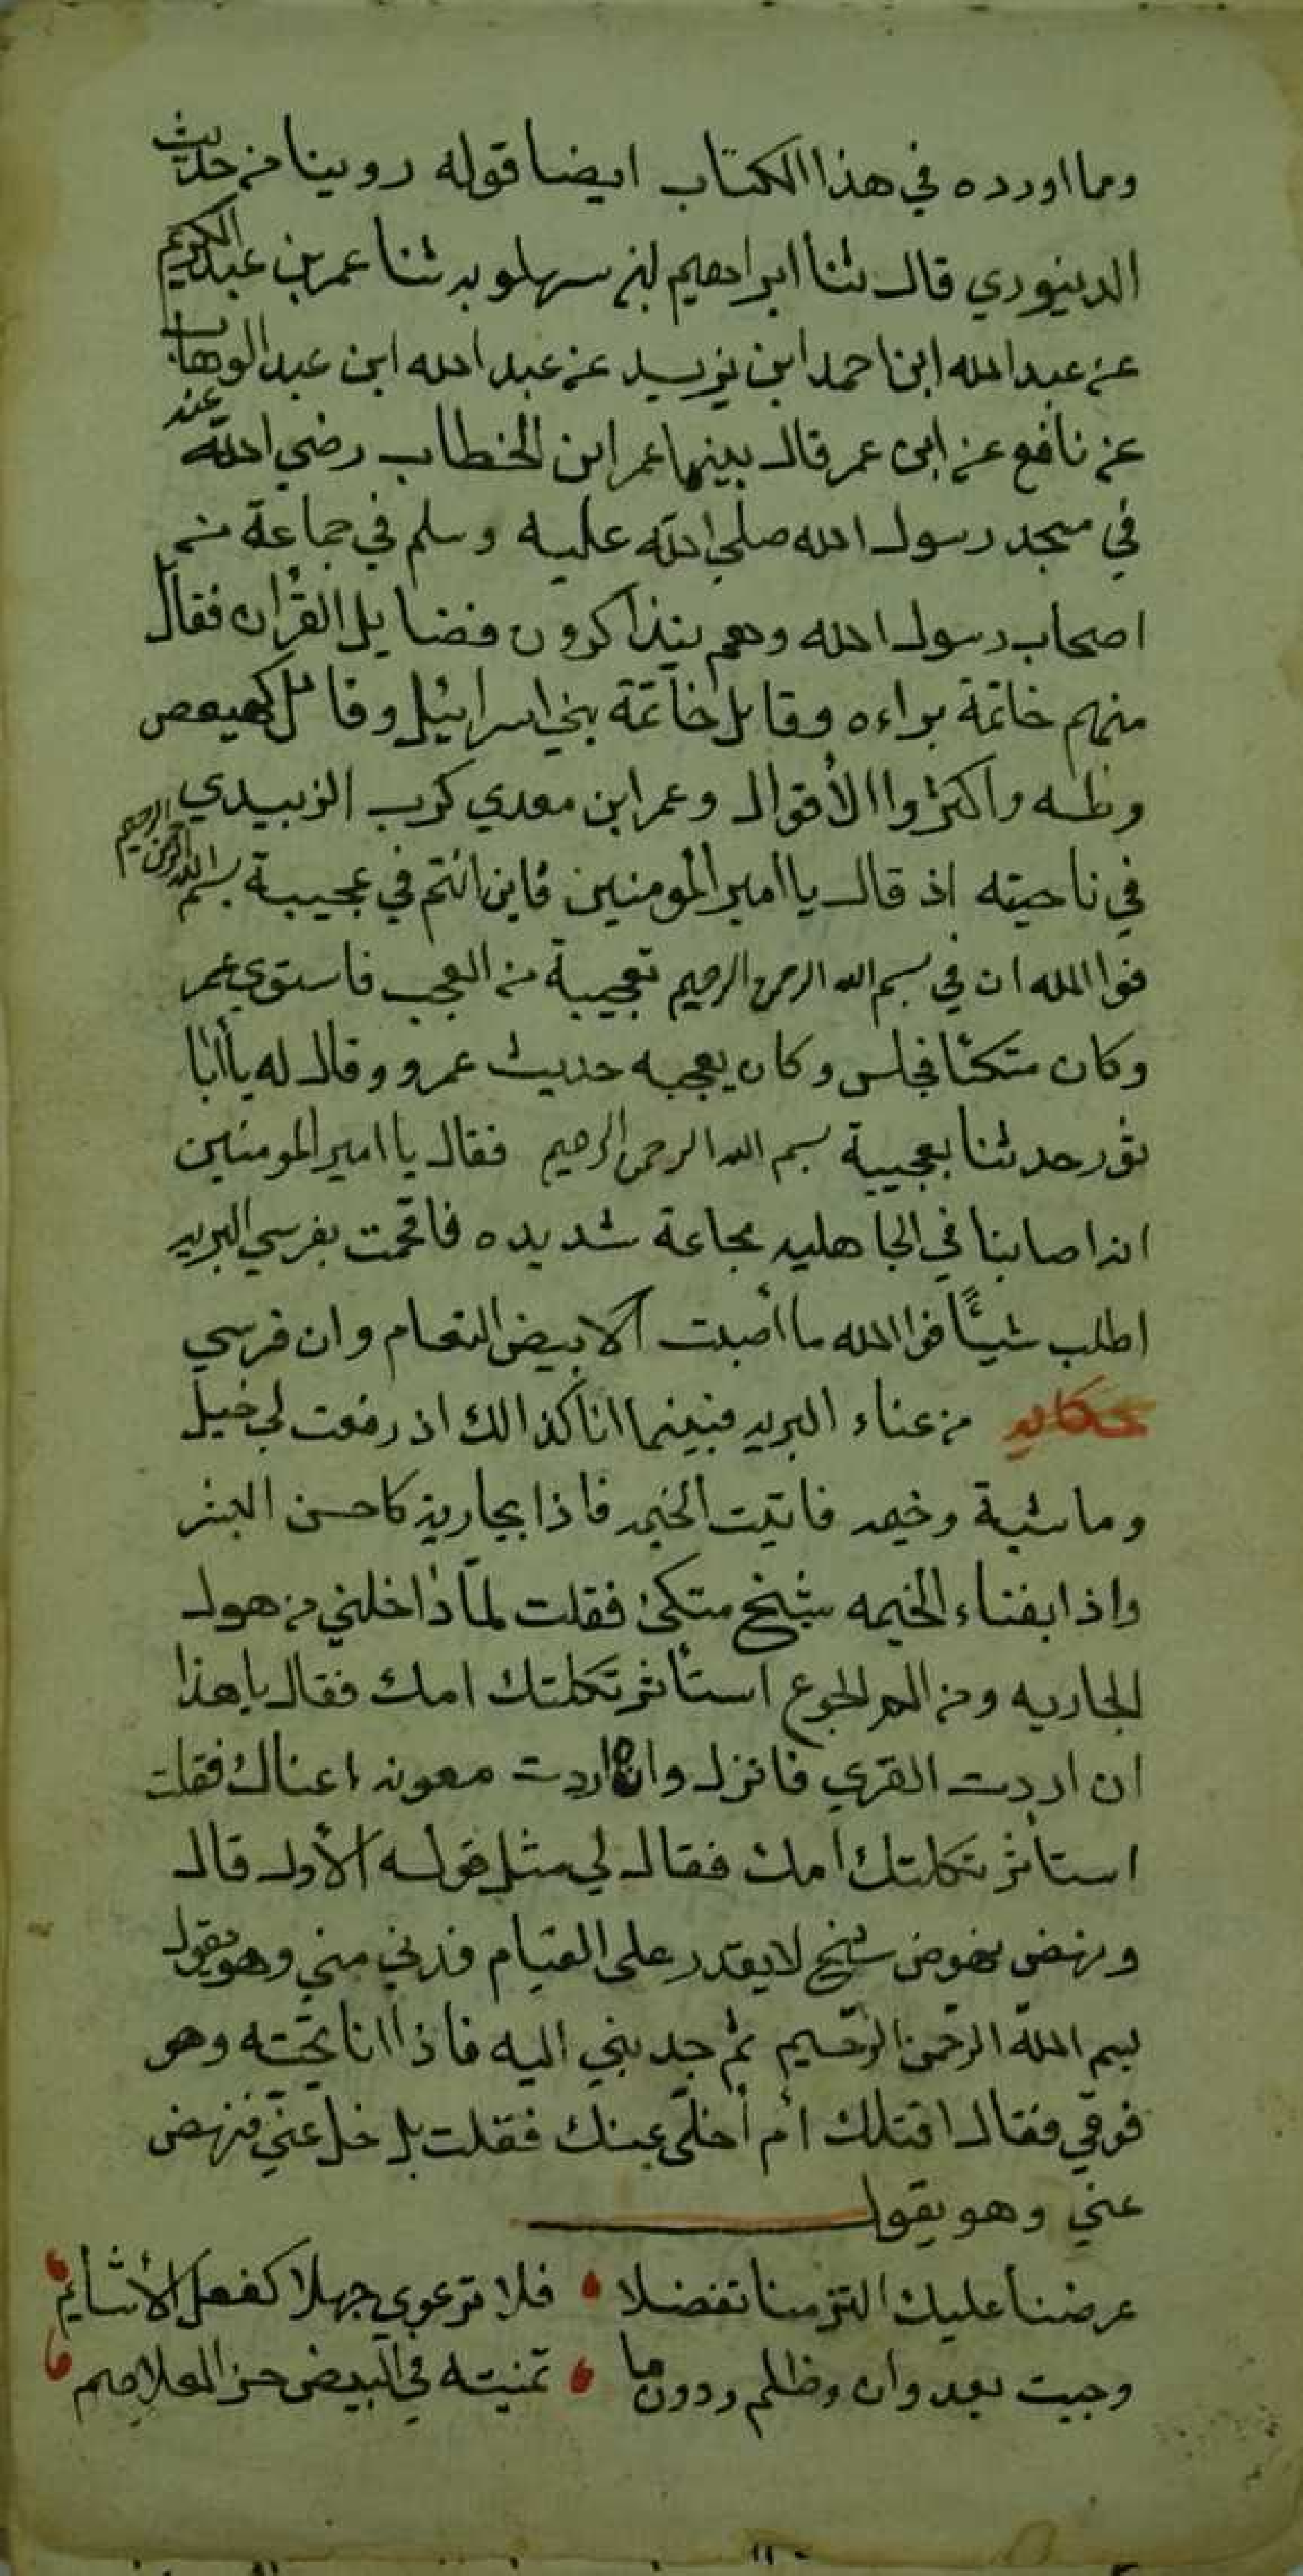 ومما اورده في هذا الكتاب ايضا قوله روينا من حديث
الدينوري قال ثنا ابراهيم ابن سهلويه ثنا عمر بن عبد الكريم
عن عبد الله ابن احمد ابن يزيد عن عبد الله ابن عبد الوهاب
عن نافع عن ابن عمر قال بينما عمر ابن الخطاب رضي الله عنه
في مسجد رسول الله صلي الله عليه وسلم في جماعة من
اصحاب رسول الله وهم يتذاكرون فضايل القرأن فقال
منهم خاتمة براءه وقايل خاتمة بني اسرائيل وقايل كهيعص
وطه واكثروا الأقوال وعمر ابن معدي كرب الزبيدي
في ناحيته اذ قال يا امير المومنين فاين انتم في عجيبة بسم الله الرحمن الرحيم
فوا الله ان في بسم الله الرحمن الرحيم تعجيبة من العجب فاستوي عمر
وكان متكئا فجلس وكان يعجبه حديث عمرو وقال له يا أبا
ثور حدثنا بعجيبة بسم الله الرحمن الرحيم فقال يا امير المومنين
انه اصابنا في الجاهليه مجاعة شديده فاقحمت بفرسي البريه
اطلب شيئًا فوا الله ما أصبت الا بيض النعام وان فرسي
حكايه من عناء البريه فبينما انا كذالك اذ رفعت لي خيل
وماشية وخيمه فاتيت الخيمه فاذا بجارية كاحسن البشر
واذا بفناء الخيمه شيخ متكئ فقلت لما داخلني من هول
الجاريه ومن الم الجوع استأثر ثكلتك امك فقال يا هذا
ان اردت القري فانزل وان اردت معونه اعناك فقلت
استأثر ثكلتك امك فقال لي مثل قوله الأول قال
ونهض نهوض شيخ لا يقدر علي القيام فدني مني وهو يقول
بسم الله الرحمن الرحيم ثم جذبني اليه فاذا انا تحته وهو
فوقي فقال اقتلك أم أخلي عنك فقلت بل خل عني فنهض
عني وهو يقول
عرضنا عليك النزل منا تفضلا فلا ترعوي جهلا كفعل الأشايم
وجيت بعدوان وظلم ودون ما تمنيته في البيض حز الغلاصم